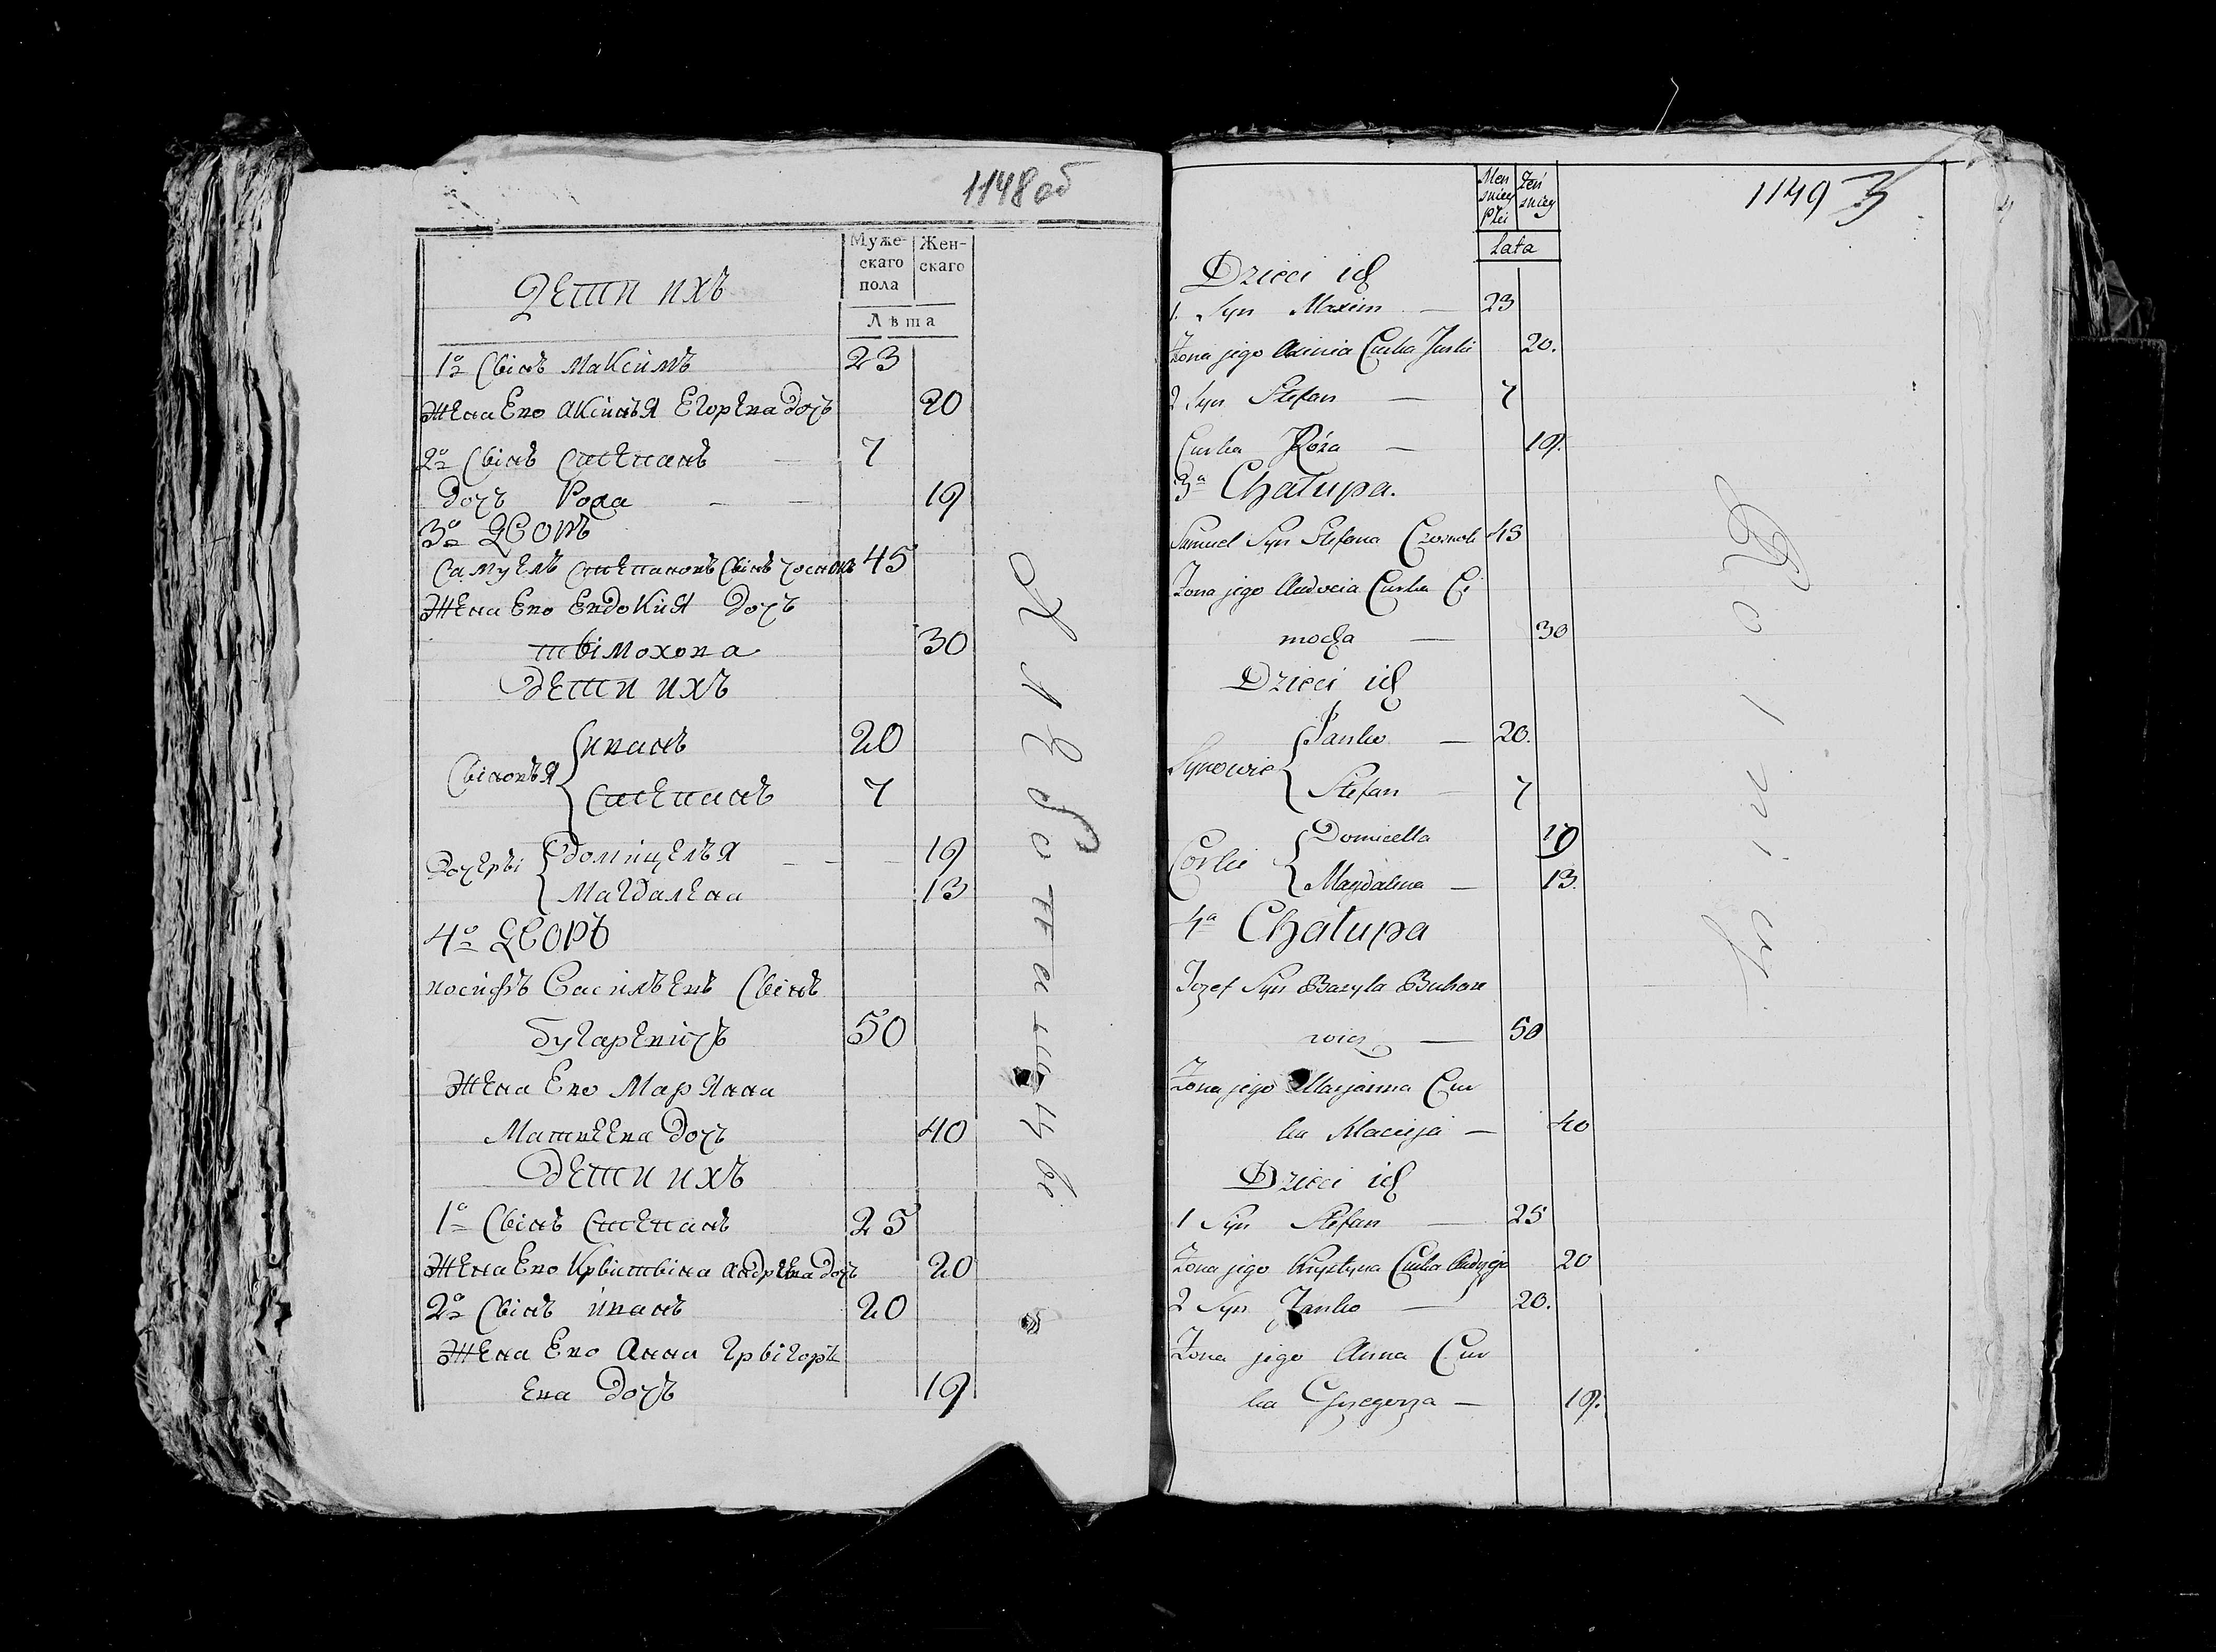 1148 об
Муже-
скаго
пола
Жен-
скаго
Лѣта
Дети ихъ
1о Сынъ Максимъ 23
Жена Ево Аксинья Егорева Дочь 20
2о Сынъ Степанъ — 7
Дочь Роза — — 19
3о Дворъ
Самуелъ Степановъ Сынъ 45
Жена Ево Евдокия Дочь
Тымохова 30
Дети ихъ
Сыновья { Иванъ 20
Степанъ 7
Дочеры { Домицелья — — 19
Магдалена 13
4о Дворъ
Иосифъ Василъевъ Сынъ
Бугаревичъ 50
Жена Ево Марянна
Матвеева Дочь 40
Дети ихъ
1о Сынъ Степанъ 25
Жена Ево Крыстына Андреева Дочь 20
2о Сынъ Иванъ 20
Жена Ево Анна Грыгорь
ева Дочь 19
1149 3
Men
skiey
Płci
Zeń
skiey
Lata
Dzieci ich
1. Syn Maxim — 23
Zona jego Axinia Curka Jurki 20.
2 Syn Stefan — 7
Curka Róża — 19.
3a Chałupa.
Samuel Syn Stefana 45
Zona jego Audocia Curka Ci
mocha — 30
Dzieci ich
Synowie { Janko — 20.
Stefan — 7
Corki { Domicella 19
Magdalena — 13.
4a Chałupa
Jozef Syn Bazyla Buhare
wicz — 50
Zona jego Marjanna Cur
ka Macieja — 40
Dzieci ich
1 Syn Stefan — 25
Zona jego Krystyna Curka Andrzeja 20
2 Syn Janko — 20.
Zona jego Anna Cur
ka Grzegorza — 19.